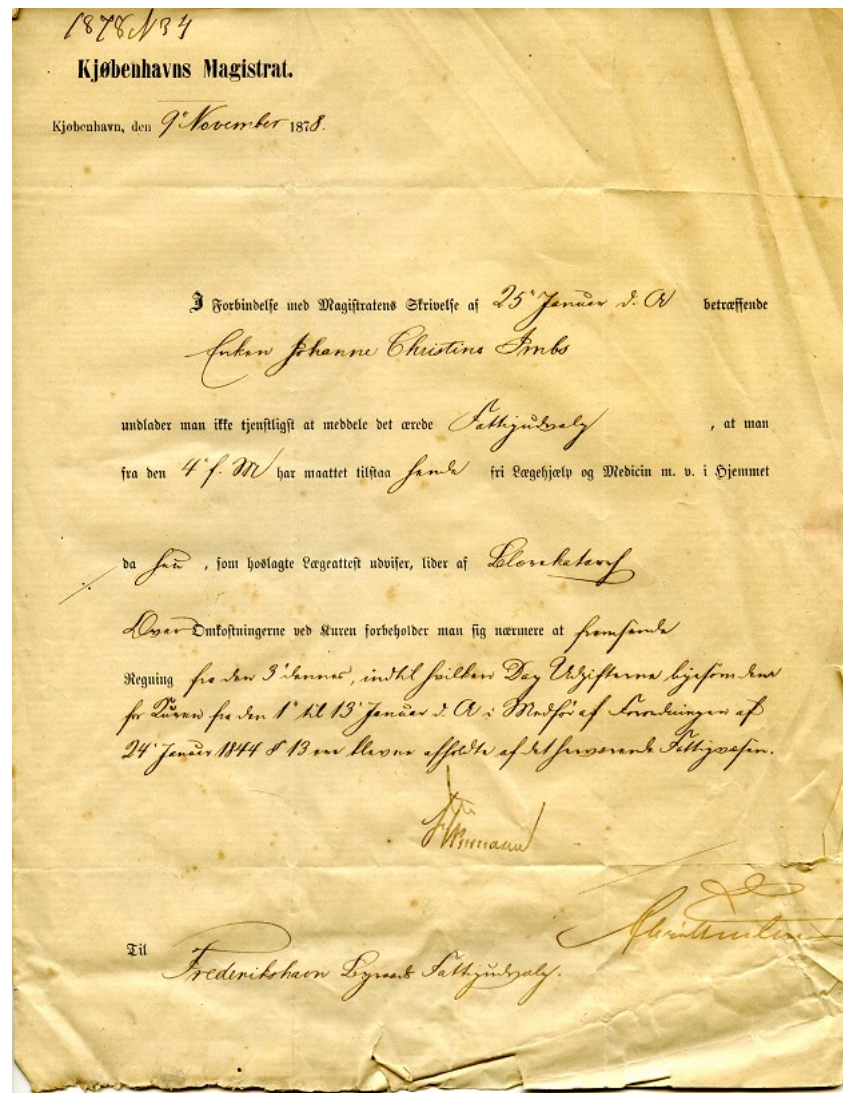 1878 N 34
Kjøbenhavns Magistrat.
Kjøbenhavn, den 9' November 1878.
I Forbindelse med Magistratens Skrivelse af 25' Januar d. A betræffende
Enken Johanne Christine Imbs
undlader man ikke tjenstligst at meddele det ærede Fattigudvalg , at man
fra den 4' f. M har maattet tilstaa hende fri Lægehjælp og Medicin m. v. i Hjemmet
da hun , som hoslagte Lægeattest udviser, lider af
Over Omkostningerne ved Kuren forbeholder man sig nærmere at fremsende
Regning fra den 3' dennes, indtil hvilken Dag Udgifterne ligesom dem
for Kuren fra den 1' til 13' Januar d. A i Medfør af Forordningen af
24' Januar 1844 § 13 ere blevne afholdte af det herværende Fattigvæsen.
Til
Frederikshavn Byraads Fattigudvalg.